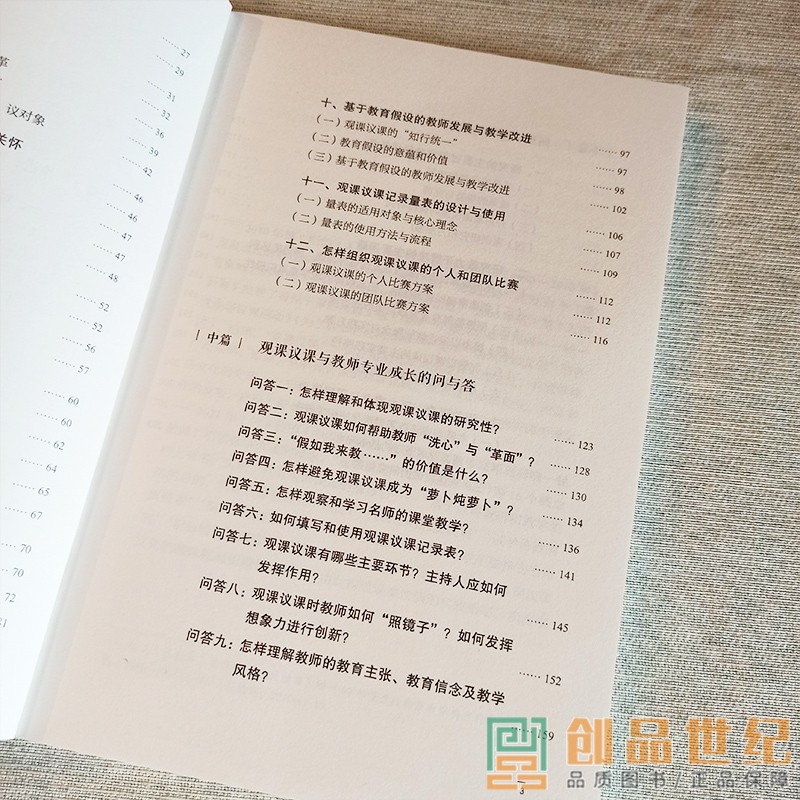 27
29
31
32
议对象
36
关怀
39
42
46
46
47
47
48
52
52
56
57
60
60
64
65
67
70
70
72
十、基于教育假设的教师发展与教学改进 ······ 97
（一）观课议课的“知行统一” ······ 97
（二）教育假设的意蕴和价值 ······ 98
（三）基于教育假设的教师发展与教学改进 ······ 102
十一、观课议课记录量表的设计与使用 ······ 106
（一）量表的适用对象与核心理念 ······ 107
（二）量表的使用方法与流程 ······ 109
十二、怎样组织观课议课的个人和团队比赛 ······ 112
（一）观课议课的个人比赛方案 ······ 112
（二）观课议课的团队比赛方案 ······ 116
| 中篇 | 观课议课与教师专业成长的问与答
问答一：怎样理解和体现观课议课的研究性？ ······ 123
问答二：观课议课如何帮助教师“洗心”与“革面”？ ······ 128
问答三：“假如我来教······”的价值是什么？ ······ 130
问答四：怎样避免观课议课成为“萝卜炖萝卜”？ ······ 134
问答五：怎样观察和学习名师的课堂教学？ ······ 136
问答六：如何填写和使用观课议课记录表？ ······ 141
问答七：观课议课有哪些主要环节？主持人应如何
发挥作用？ ······ 145
问答八：观课议课时教师如何“照镜子”？如何发挥
想象力进行创新？ ······ 152
问答九：怎样理解教师的教育主张、教育信念及教学
风格？ ······ 159
3
创品世纪
品质图书/正品保障